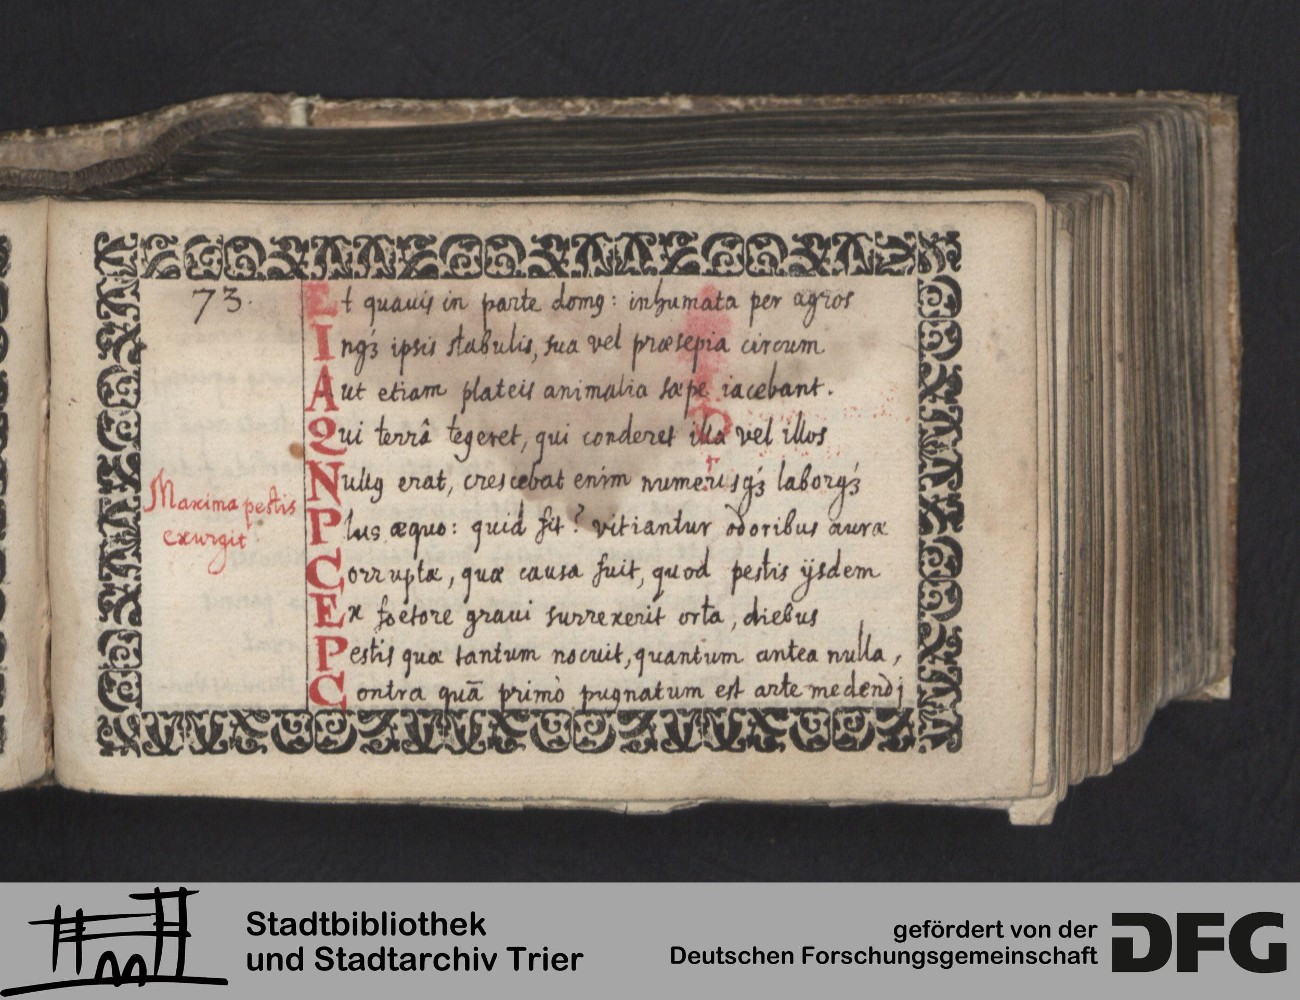 73.
Et quauis in parte domꝰ: inhumata per agros
Inqꝫ ipsis stabulis, sua vel præsepia circum
Aut etiam plateis animalia sæpe iacebant.
Qui terrâ tegeret, qui conderet illa vel illos
Nullꝰ erat, crescebat enim numerusqꝫ laborqꝫ
Maxima pestis
exurgit
Plus æquo: quid fit? vitiantur odoribus auræ
Corruptæ, quæ causa fuit, quod pestis ijsdem
Ex foetore graui surrexerit orta, diebus
Pestis quæ tantum nocuit, quantum antea nulla,
Contra quā primò pugnatum est arte medendj
Stadtbibliothek
und Stadtarchiv Trier
gefördert von der
Deutschen Forschungsgemeinschaft
DFG